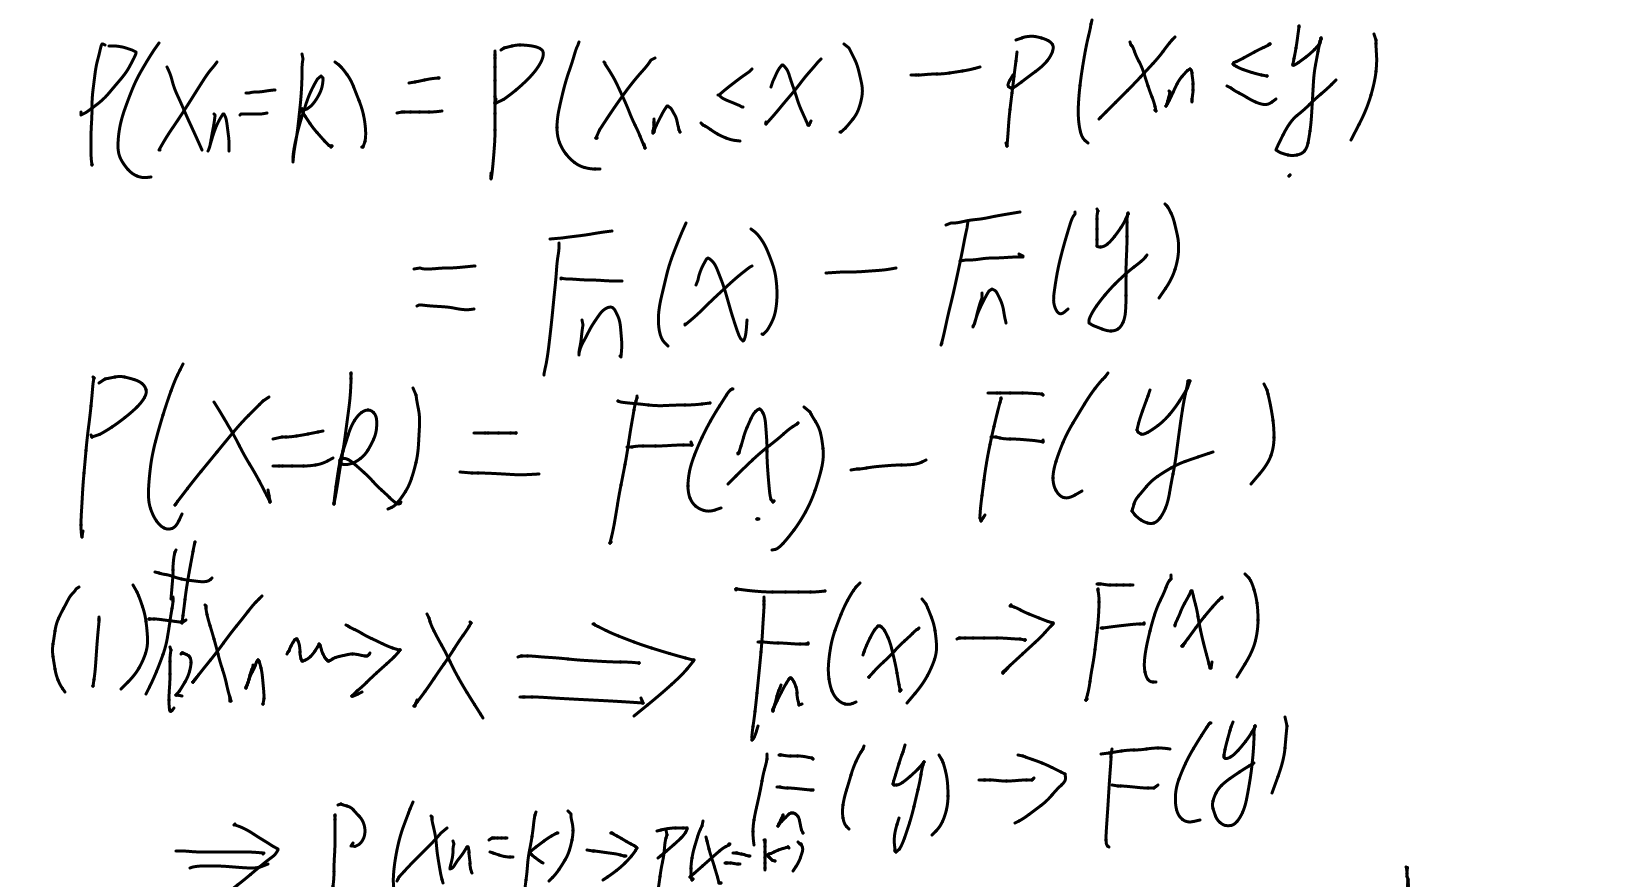 P(Xn=k) = P(Xn≤x) - P(Xn≤y)
= Fn(x) - Fn(y)
P(X=k) = F(x) - F(y)
(1) 若 Xn ⇝ X ⟹ Fn(x) → F(x)
Fn(y) → F(y)
⟹ P(Xn=k) → P(X=k)